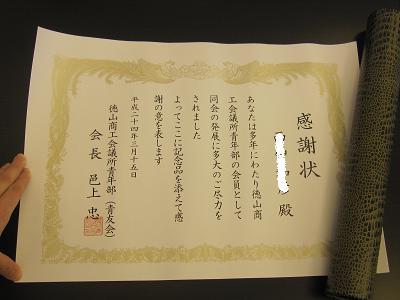 感謝状
殿
あなたは多年にわたり徳山商
工会議所青年部の会員として
同会の発展に多大のご尽力を
されました
よってここに記念品を添えて感
謝の意を表します
平成二十四年三月十五日
徳山商工会議所青年部(青友会)
会長 邑上 忠